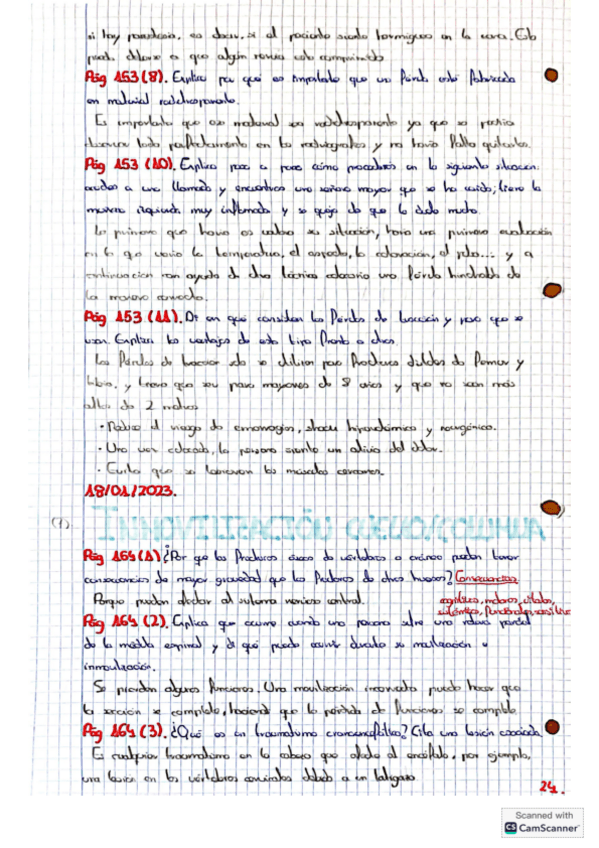 si hay parestesia, es decir, si el paciente siente hormigueo en la cara. Ello
puede deberse a que algún nervio esté comprimido
Pág 153 (8). Explica por qué es importante que una férula esté fabricada
en material radiotransparente.
Es importante que ese material sea radiotransparente ya que se podría
observar todo perfectamente en las radiografías y no haría falta quitarlas.
Pág 153 (10). Explica paso a paso cómo procederías en la siguiente situación:
acudes a una llamada y encuentras una señora mayor que se ha caído; tiene la
muñeca izquierda muy inflamada y se queja de que le duele mucho.
Lo primero que haría es valorar su situación, haría una primera evaluación
en la que vería la temperatura, el aspecto, la coloración, el pulso... y a
continuación con ayuda de otro técnico colocaría una férula hinchable de
la manera correcta.
Pág 153 (11). Di en qué consisten las férulas de tracción y para que se
usan. Explica las ventajas de este tipo frente a otras.
Las férulas de tracción solo se utilizan para fracturas distales de fémur y
tibia, y tiene que ser para mayores de 8 años y que no sean más
altos de 2 metros
· Reduce el riesgo de hemorragias, shock hipovolémico y neurogénico.
· Una vez colocada, la persona siente un alivio del dolor.
· Evita que se contraigan los músculos cercanos.
18/01/2023.
(7). INMOVILIZACIÓN CUELLO/COLUMNA
Pág 164 (1) ¿Por qué las fracturas óseas de vértebras o cráneo pueden tener
consecuencias de mayor gravedad que las fracturas de otros huesos? Consecuencias
Porque pueden afectar al sistema nervioso central.
Pág 164 (2). Explica que ocurre cuando una persona sufre una rotura parcial
de la médula espinal y di qué puede ocurrir durante su movilización e
inmovilización.
Se pierden algunas funciones. Una movilización incorrecta puede hacer que
la sección se complete, haciendo que la pérdida de funciones sea completa
Pág 164 (3). ¿Qué es un traumatismo craneoencefálico? Cita una lesión asociada
Es cualquier traumatismo en la cabeza que afecte al encéfalo, por ejemplo,
una lesión en las vértebras cervicales debido a un latigazo
24.
Scanned with
CS CamScanner